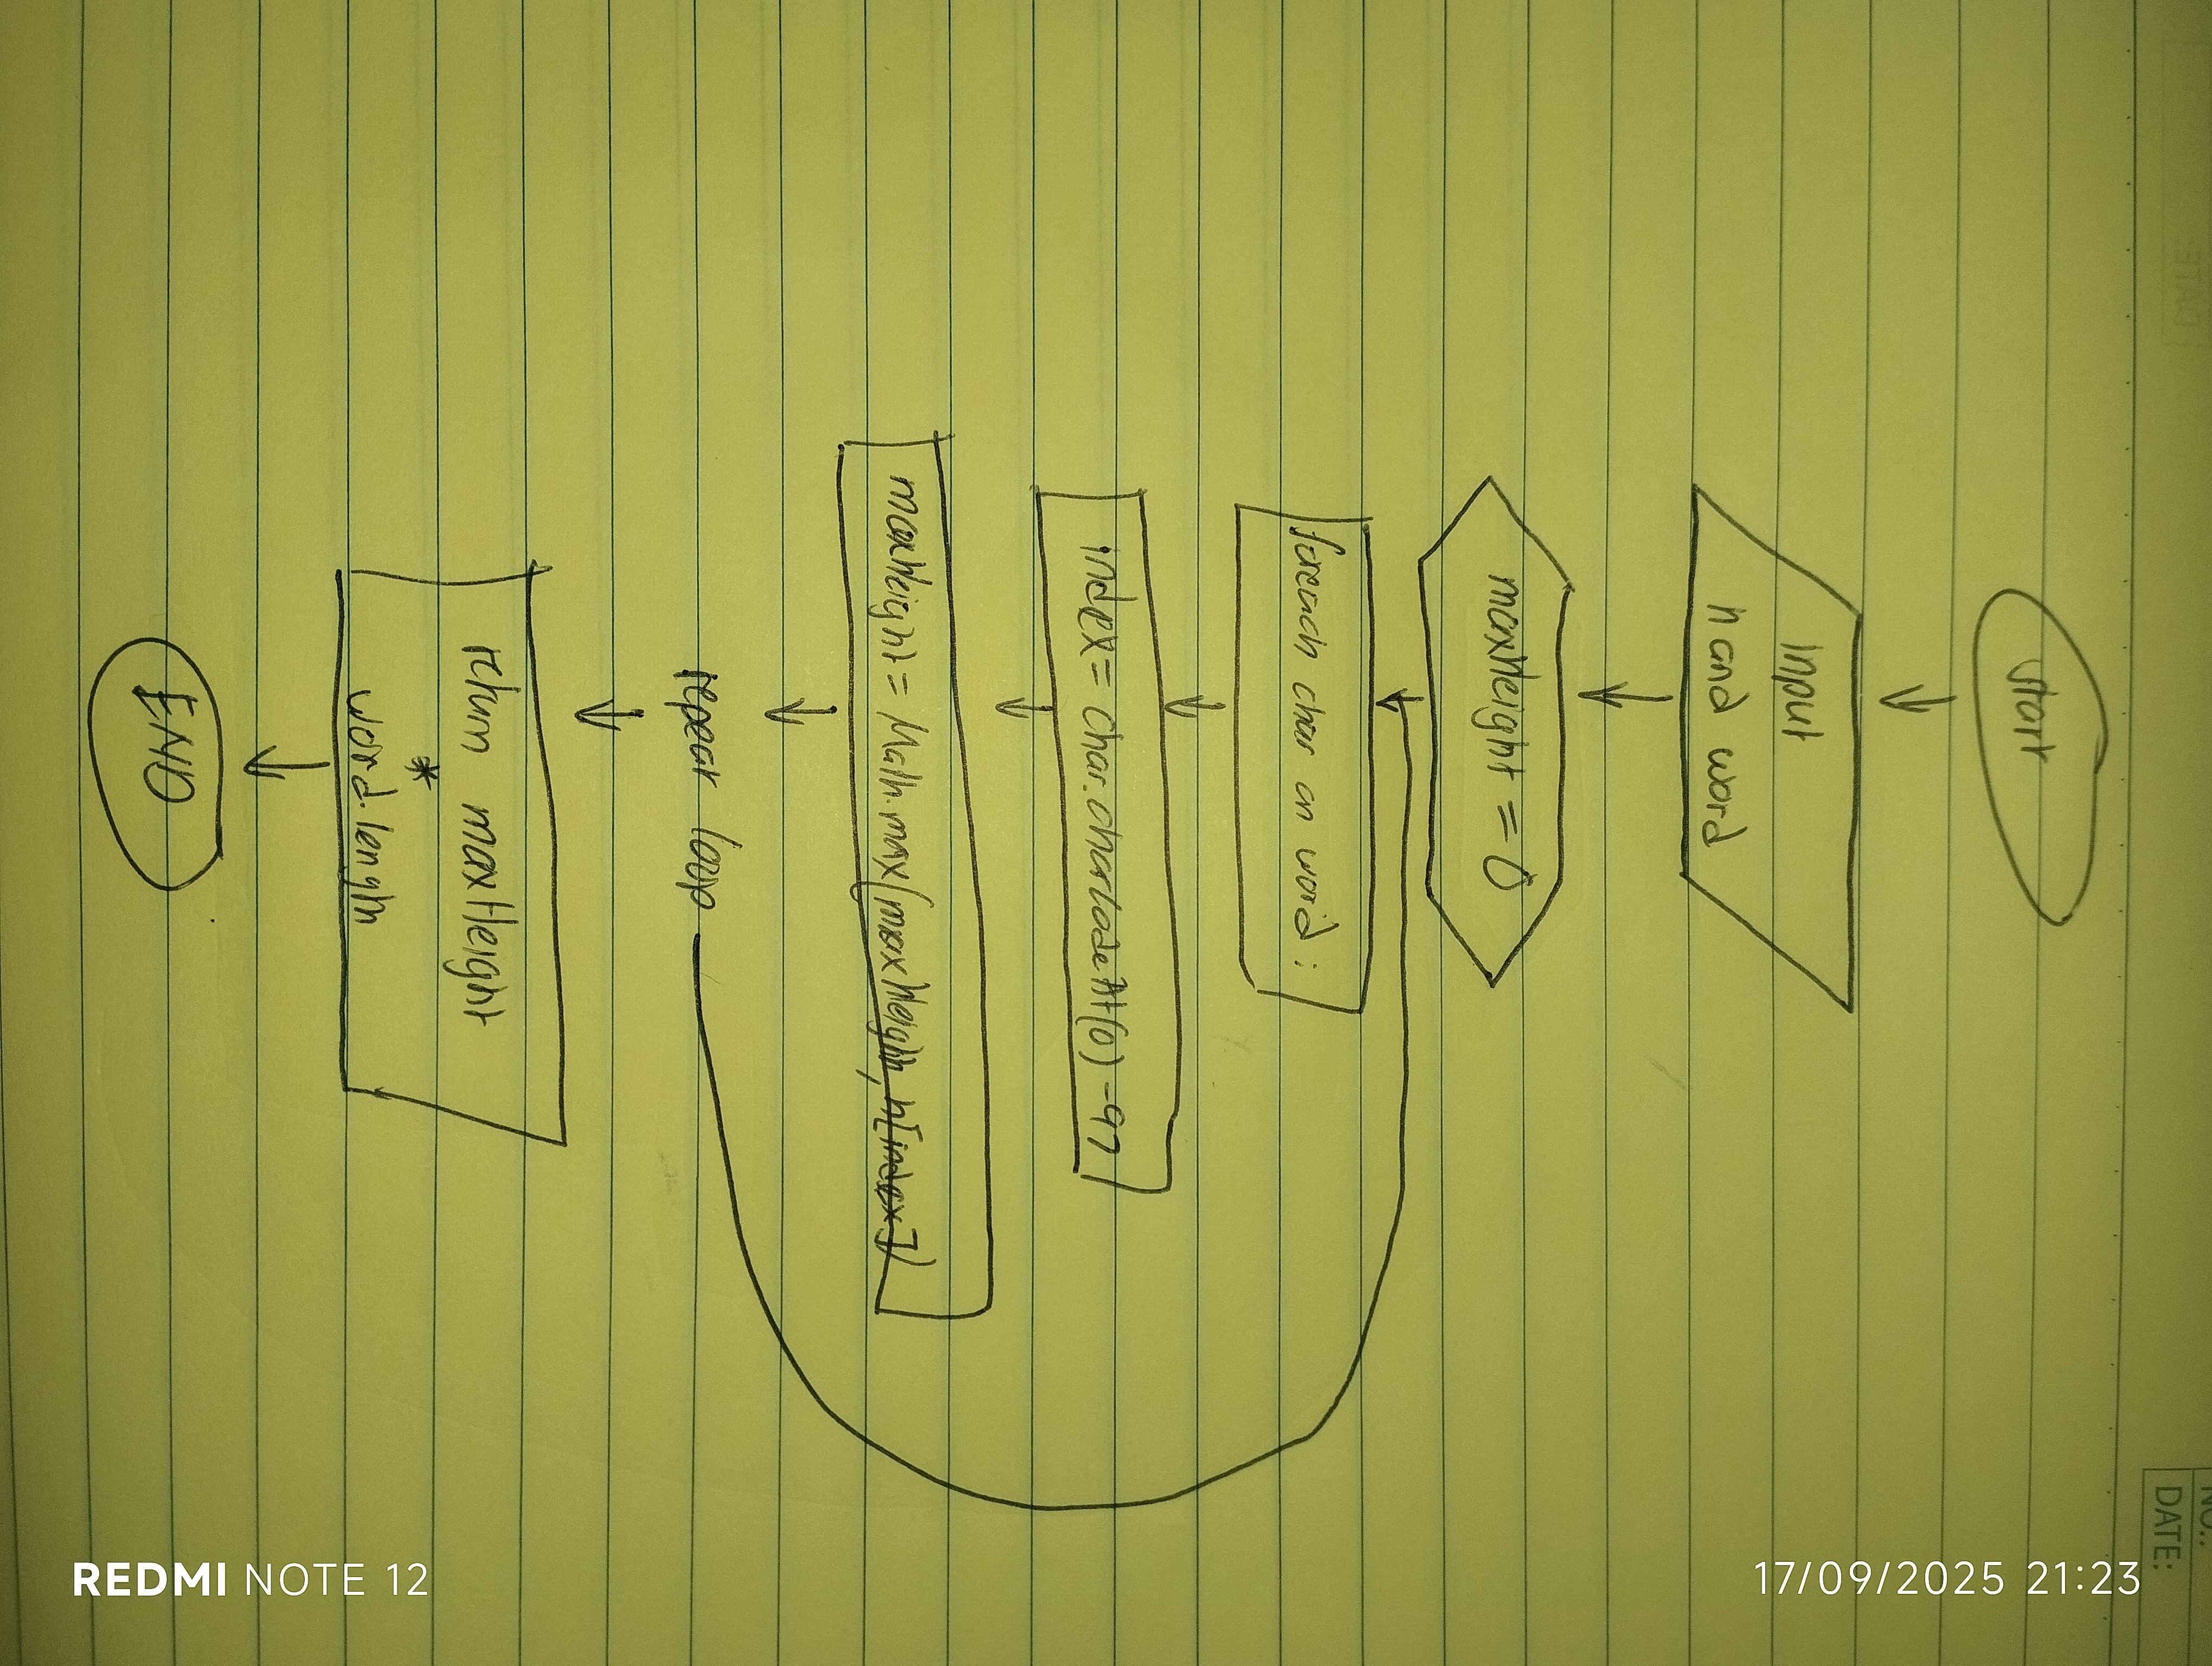 Start
Input
h and word
maxHeight = 0
foreach char on word :
index = char.charCodeAt(0) - 97
maxHeight = Math.max(maxHeight, h[index])
repear loop
return maxHeight
*
word.length
END
NO.:
DATE:
REDMI NOTE 12
17/09/2025 21:23